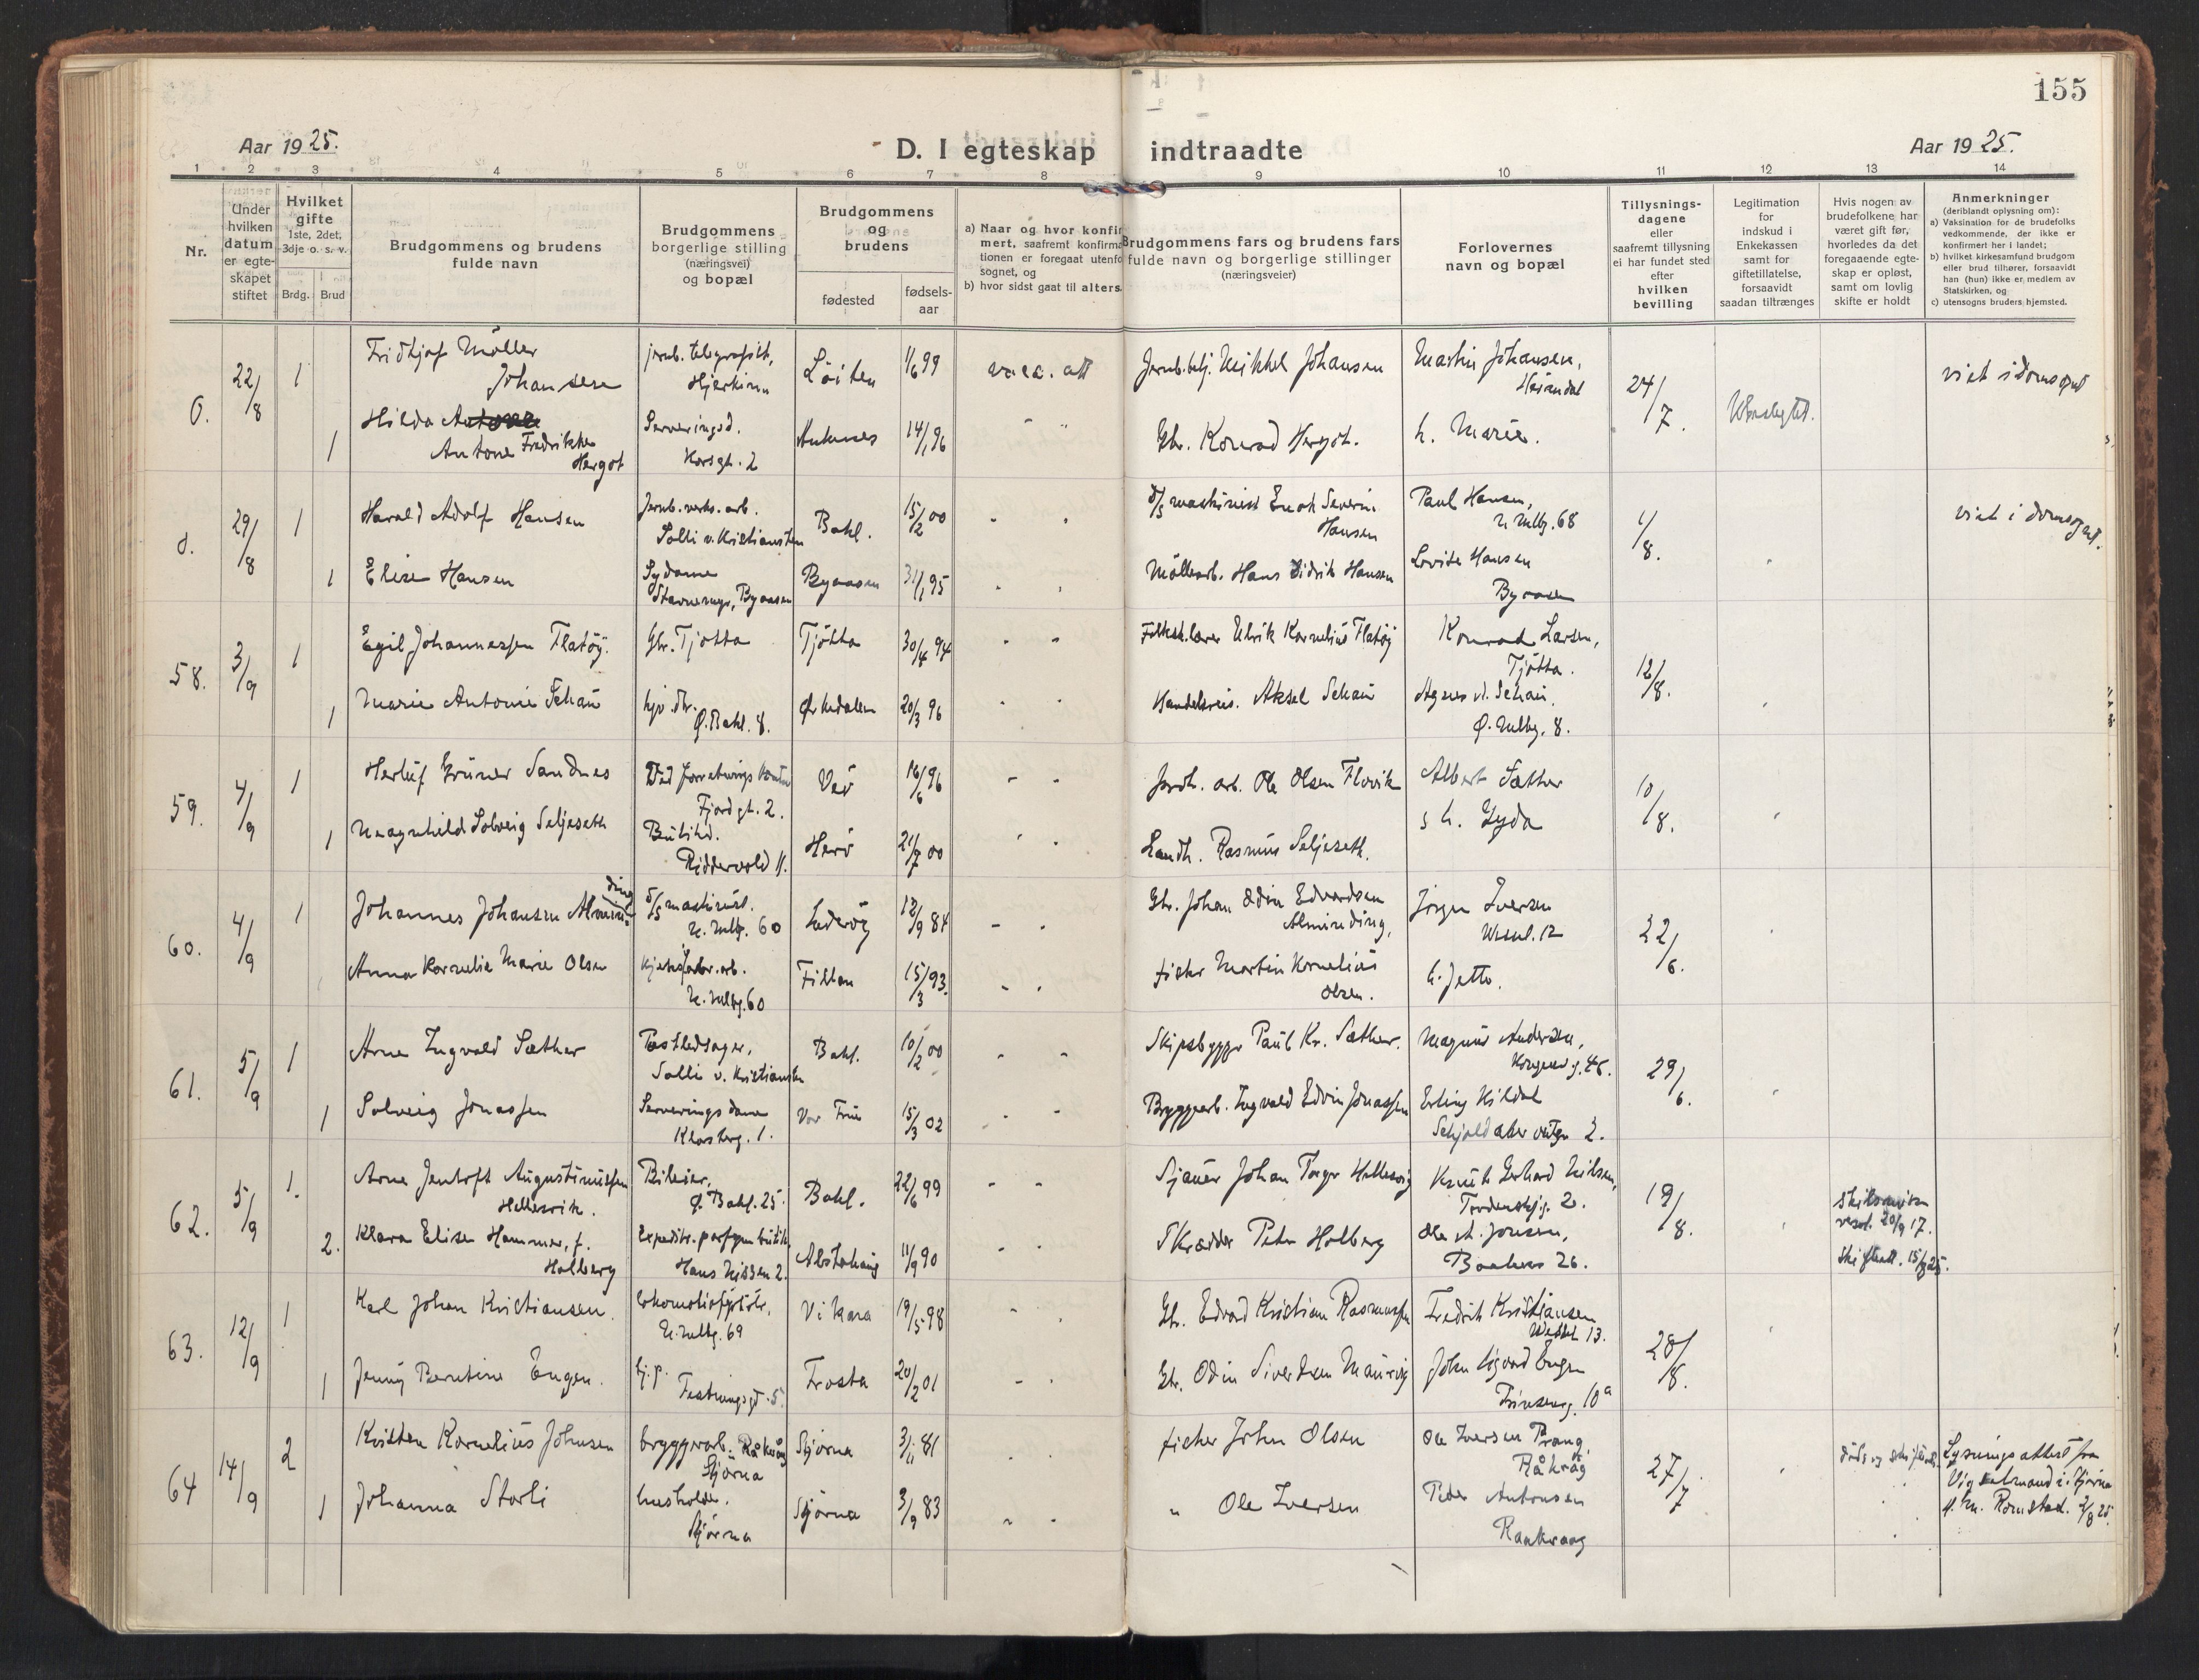 155
Aar 1925.
D. I egteskap indtraadte
Aar 1925.
1 2 3 4 5 6 7 8 9 10 11 12 13 14
Nr.
Under hvilken datum er egte-skapet stiftet
Hvilket gifte
1ste, 2det, 3dje o. s. v.
Brdg. Brud
Brudgommens og brudens fulde navn
Brudgommens borgerlige stilling (næringsvei) og bopæl
Brudgommens og brudens
fødested
fødsels-aar
a) Naar og hvor konfir
mert, saafremt konfirma
tionen er foregaat utenfo
sognet, og
b) hvor sidst gaat til alters.
Brudgommens fars og brudens fars
fulde navn og borgerlige stillinger
(næringsveier)
Forlovernes
navn og bopæl
Tillysnings-
dagene
eller
saafremt tillysning
ei har fundet sted
efter
hvilken
bevilling
Legitimation
for
indskud i
Enkekassen
samt for
giftetillatelse,
forsaavidt
saadan tiltrænges
Hvis nogen av
brudefolkene har
været gift før,
hvorledes da det
foregaaende egte-
skap er opløst,
samt om lovlig
skifte er holdt
Anmerkninger
(deriblandt oplysning om):
a) Vaksination for de brudefolks
vedkommende, der ikke er
konfirmert her i landet;
b) hvilket kirkesamfund brudgom
eller brud tilhører, forsaavidt
han (hun) ikke er medlem av
Statskirken, og
c) utensogns bruders hjemsted.
0. 22/8 1 Fridtjof Møller Johansen
jernb. telegrafist, Hjerkinn
Løiten 1/6 99 vacc. att
Jernb.betj. Mikkel Johansen
Martin Johansen,
24/7.
viet i domsognet
1 Hilda Antone Fredrikke Hergot
Serveringsd. Korsgt. 2
14/1 96
Gbr. Konrad Hergot.
h. Marie.
8. 29/8 1 Harald Adolf Hansen
Jernb. verks. arb.
Solli v. Kristiansten
Bakl. 15/2 00
d/s maskinist Enok Severin Hansen
Paul Hansen,
N. Mllbg. 68
1/8.
viet i domsognet.
1 Elise Hansen
Sydame
Byaasen 31/1 95
Møllearb. Hans Didrik Hansen
Lovise Hansen
Byaasen
58. 3/9 1 Egil Johannessen Flatøy.
Gbr. Tjøtta
Tjøtta 30/4 94
Folksk.lærer Ulrik Kornelius Flatøy
Konrad Larsen,
Tjøtta.
12/8.
1 Marie Antonie Schau
Ø. Bakl. 8.
Ørkedalen 20/3 96
Handelsreis. Aksel Schau
Agnes d. Schau.
Ø. Mllbg. 8.
59. 4/9 1 Herluf Grüner Sandnes
Fjordgt. 2.
16/6 96
Jordb. arb. Ole Olsen Flovik
Albert Sæther
10/8.
1 Magnhild Solveig Seljeseth
Butikd.
Riddervold 11.
Herø 21/7 00
Landh. Rasmus Seljeseth.
s h. Gyda
60. 4/9 1 Johannes Johansen Alminding
d/s maskinist.
N. Mllbg. 60
Inderøy 13/9 84
Gbr. Johan Edin Edvardsen Alminding,
Jørgen Iversen
22/6.
Anna Kornelia Marie Olsen
kjeksfabr. arb.
N. Mllbg. 60
Fillan 15/3 93.
fisker Martin Kornelius Olsen.
h. Jette.
61. 5/9 1 Arne Ingvald Sæther
Postledsager,
Solli v. Kristiansten
Bakl. 10/2 00
Skipsbygger Paul Kr. Sæther.
Magnus Andersen,
29/6.
1 Solveig Jonassen
Serveringsdame
Klosterg. 1.
Vor Frue 15/3 02
Bryggearb. Ingvald Edvin Jonassen
Erling Kildal
62. 5/9 1. Arne Jentoft Augustinussen Hellesvik.
Bileier,
Ø. Bakl. 25.
Bakl. 22/6 99
Sjauer Johan Hellesvig
Knut Gerhard Nilsen,
Tordenskj.g. 2.
19/8.
2. Klara Elise Hammer, f. Holberg
Hans Nissen 2.
Alstahaug 11/9 90
Skrædder Peter Holberg
Ole A. Jonsen,
Bakland 26.
63. 12/9 1 Karl Johan Kristiansen.
lokomotivfyrbøt.
N. Mllbg. 69
Vikna 19/5 98
Gbr. Edvard Kristian Rasmussen
Fredrik Kristiansen
Wessel 13.
28/8.
1 Jenny Berntine Engen.
hj. p.
Festningsgt. 5.
Frosta 20/2 01
Gbr. Odin Sivertsen
John Sigvard Engen
10a
64 14/9 2 Kristen Kornelius Johnsen
bryggearb. Råkvåg
Stjørna
Stjørna 3/11 81
fisker John Olsen
Ole Iversen Prang,
Råkvåg
27/7
Lysningsattest fra
1 Johanna Storli
husholder.
Stjørna
Stjørna 3/9 83
" Ole Iversen
Peder Antonsen
Raakvaag